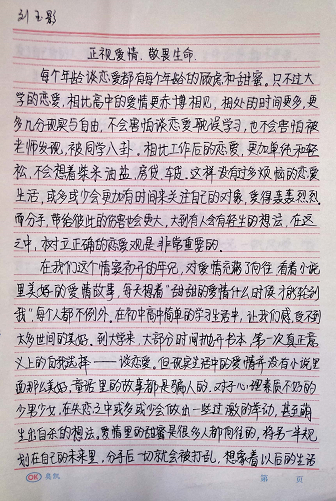 刘玉影
正视爱情，敬畏生命.
每个年龄谈恋爱都有每个年龄的顾虑和甜蜜。只不过大
学的恋爱，相比高中的爱情更赤博相见，相处的时间更多，更
多几分现实与自由，不会害怕谈恋爱耽误学习，也不会害怕被
老师发现，被同学八卦。相比工作后的恋爱，更加单纯和轻
松，不会想着柴米油盐，房贷，车贷。这样没有过多烦恼的恋爱
生活，或多或少会更加有时间来关注自己的对象，爱得轰轰烈烈，
而分手，带给彼此的伤害也会更大，大到有人会有轻生的想法，在这
之中，树立正确的恋爱观是非常重要的。
在我们这个情窦初开的年纪，对爱情充满了向往，看着小说
里美好的爱情故事，每天想着“甜甜的爱情什么时候才能轮到
我”，每个人都不例外。在初中高中简单的学习生活中，让我们感受不到
太多世间的美好。到大学来，大部分时间抛开书本，第一次真正意
义上的自我选择——谈恋爱。但现实生活中的爱情并没有小说里
面那么美好，童话里的故事都是骗人的。对于心理素质不好的
少男少女，在失恋之中或多或少会做出一些过激的举动，甚至萌
生出自杀的想法。爱情里的甜蜜是很多人都向往的，将另一半规
划在自己的未来里，分手后一切就会被打乱，想象着以后的生活
OK
第 页